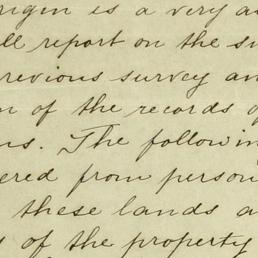 origin is a very a
ll report on the su
revious survey an
n of the records o
ns. The followin
ered from person
these lands a
s of the property